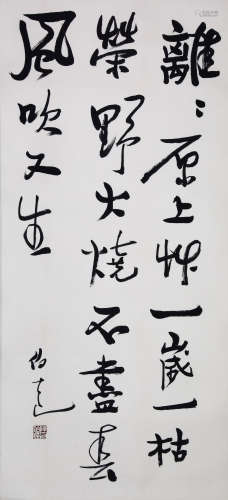 離〻原上艸一歲一枯
榮野火燒不盡春
風吹又生